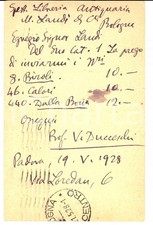 Spett. Libreria Antiquaria
M. Landi & Cº
Bologna
Egregio Signor Landi
Del Suo Cat. 1 La prego
di inviarmi i Nri
8 Biroli. 10.—
46. Calori 10.—
440. Dalla Bona 12.—
Ossequi
Prof V. Ducceschi
Padova, 19. V. 1928
Via Loredan, 6